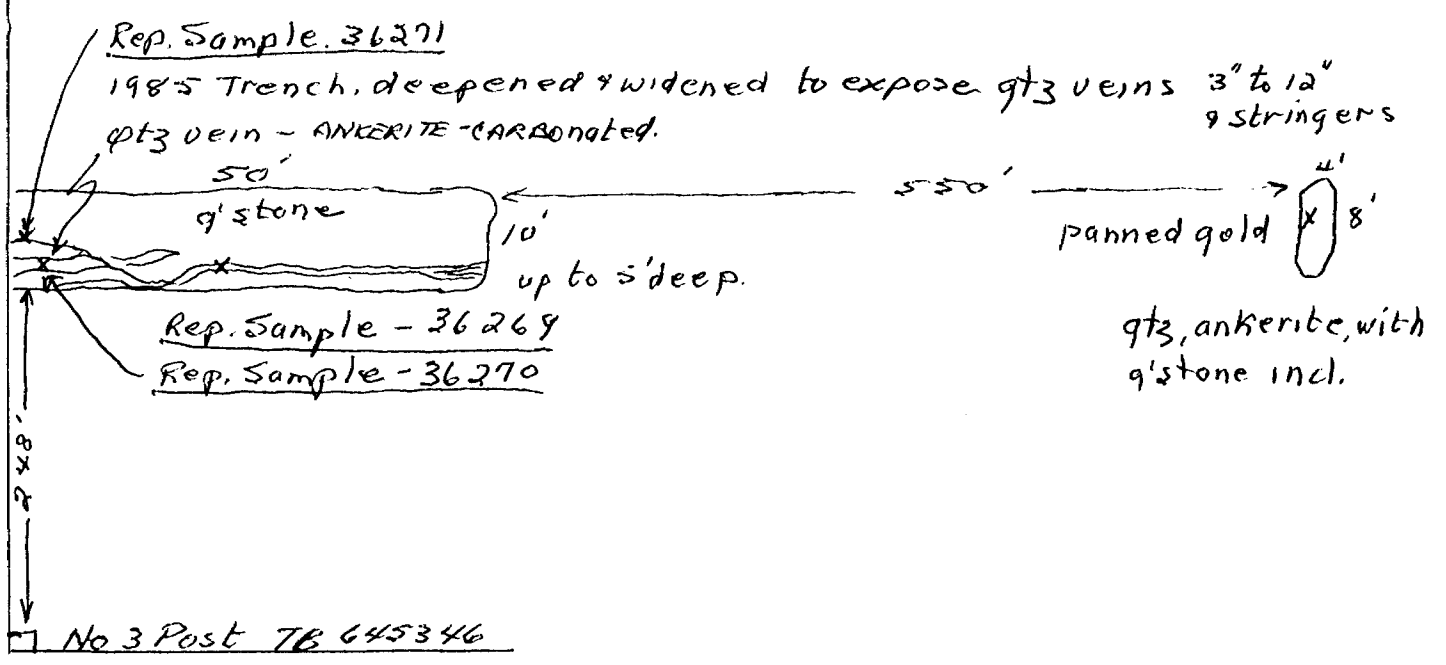 Rep. Sample. 36271
1985 Trench, deepened & widened to expose qtz veins 3" to 12"
& stringers
qtz vein - ANKERITE-CARBonated.
50'
550'
4'
g'stone
10'
panned gold
8'
up to 5' deep.
Rep. Sample - 36269
Rep. Sample - 36270
qtz, ankerite, with
g'stone incl.
No 3 Post TB 645346